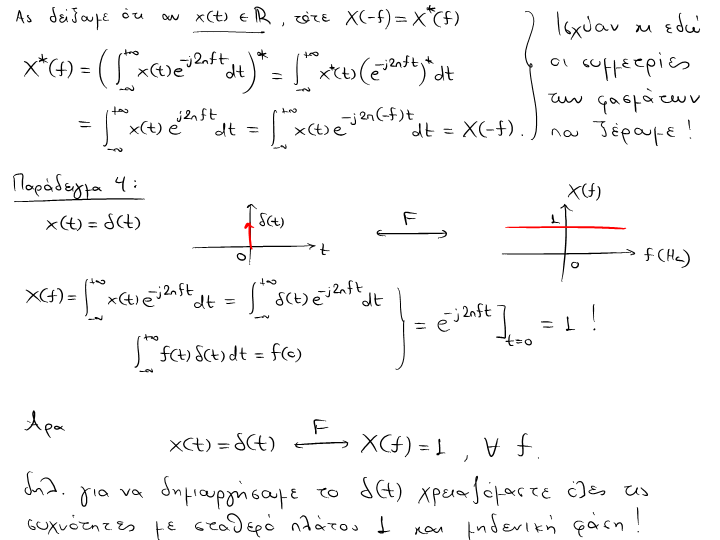 Ας δείξουμε ότι αν x(t) ∈ ℝ, τότε X(-f) = X*(f)
X*(f) = (∫_{-∞}^{+∞} x(t) e^{-j2πft} dt)* = ∫_{-∞}^{+∞} x*(t) (e^{-j2πft})* dt
= ∫_{-∞}^{+∞} x(t) e^{j2πft} dt = ∫_{-∞}^{+∞} x(t) e^{-j2π(-f)t} dt = X(-f).
Ισχύουν κι εδώ
οι συμμετρίες
των φασμάτων
που ξέραμε!
Παράδειγμα 4:
x(t) = δ(t)
δ(t)
0
t
F
X(f)
1
0
f(Hz)
X(f) = ∫_{-∞}^{+∞} x(t) e^{-j2πft} dt = ∫_{-∞}^{+∞} δ(t) e^{-j2πft} dt
∫_{-∞}^{+∞} f(t) δ(t) dt = f(0)
= e^{-j2πft} ]_{t=0} = 1 !
Άρα
x(t) = δ(t) ⟷^{F} X(f) = 1, ∀ f.
δηλ. για να δημιουργήσουμε το δ(t) χρειαζόμαστε όλες τις
συχνότητες με σταθερό πλάτος 1 και μηδενική φάση!